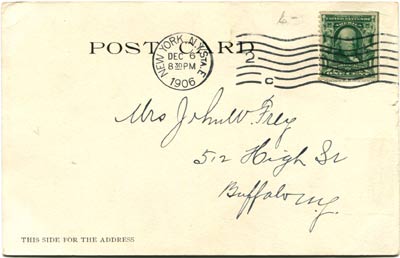 6-
POST CARD
NEW YORK, N.Y. STA. E
DEC 6
8 30 PM
1906
2
C
Mrs John W Frey
512 High St
Buffalo N.Y.
THIS SIDE FOR THE ADDRESS